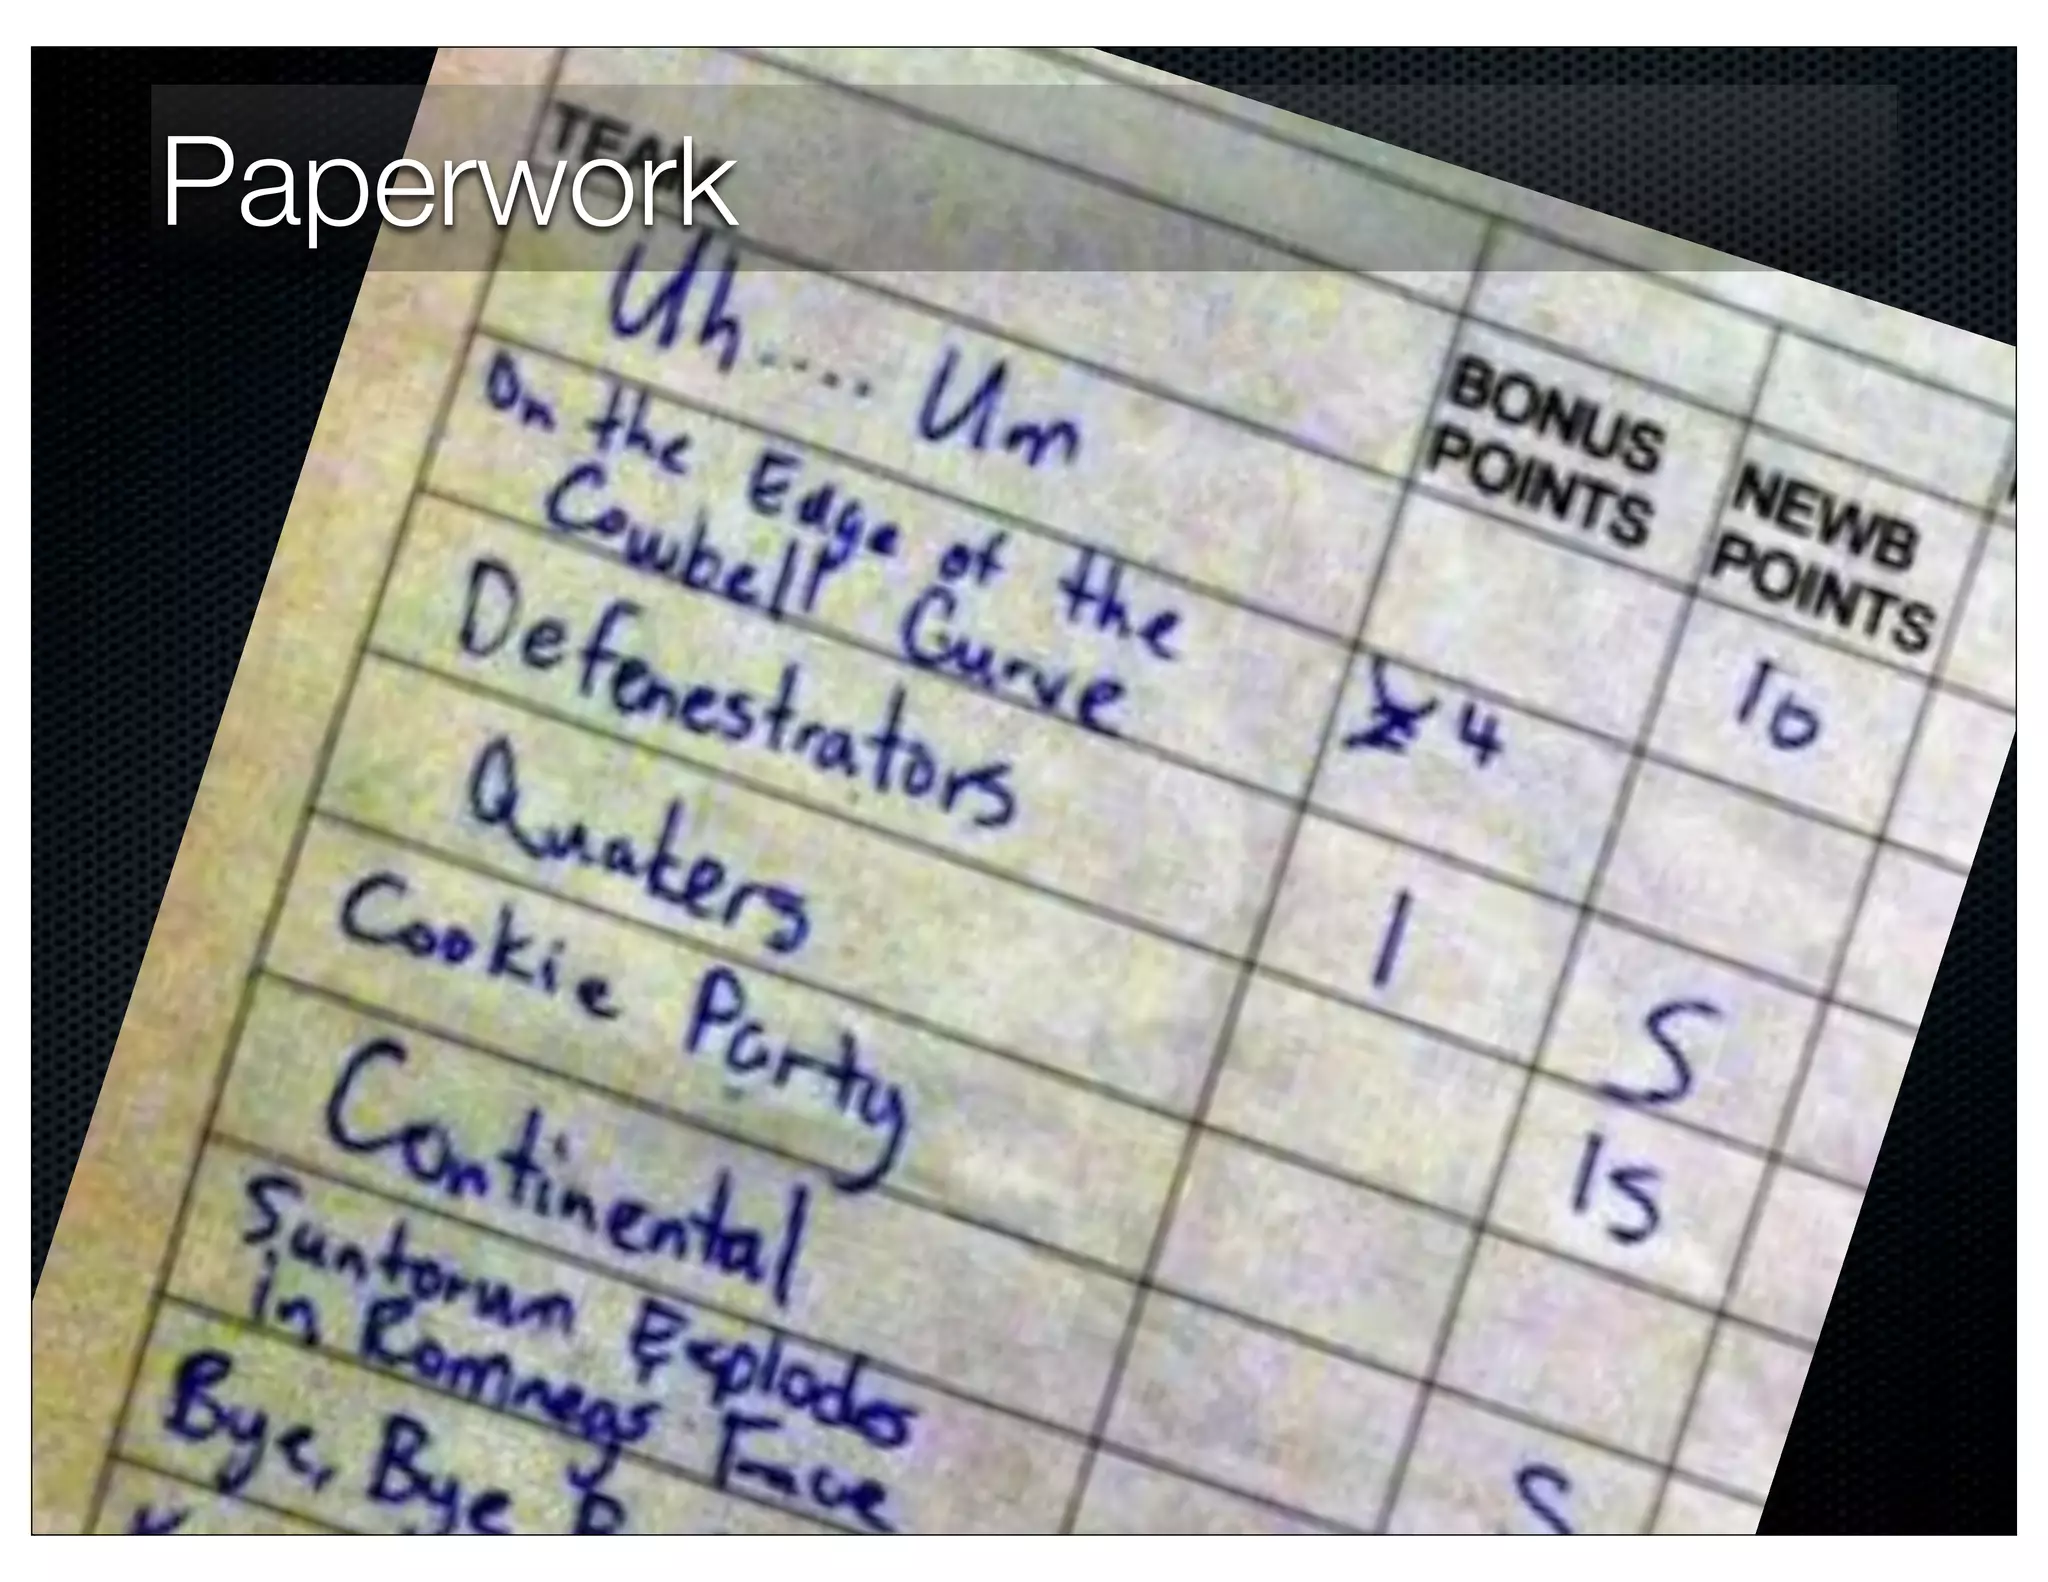 Paperwork
TEAM
BONUS POINTS
NEWB POINTS
Uh.... Um 10
On the Edge of the
Cowbell Curve 4
Defenestrators 1 5
Quakers 15
Cookie Party
Continental 5
Suntorum Explodes
in Romneys Face
Bye, Bye